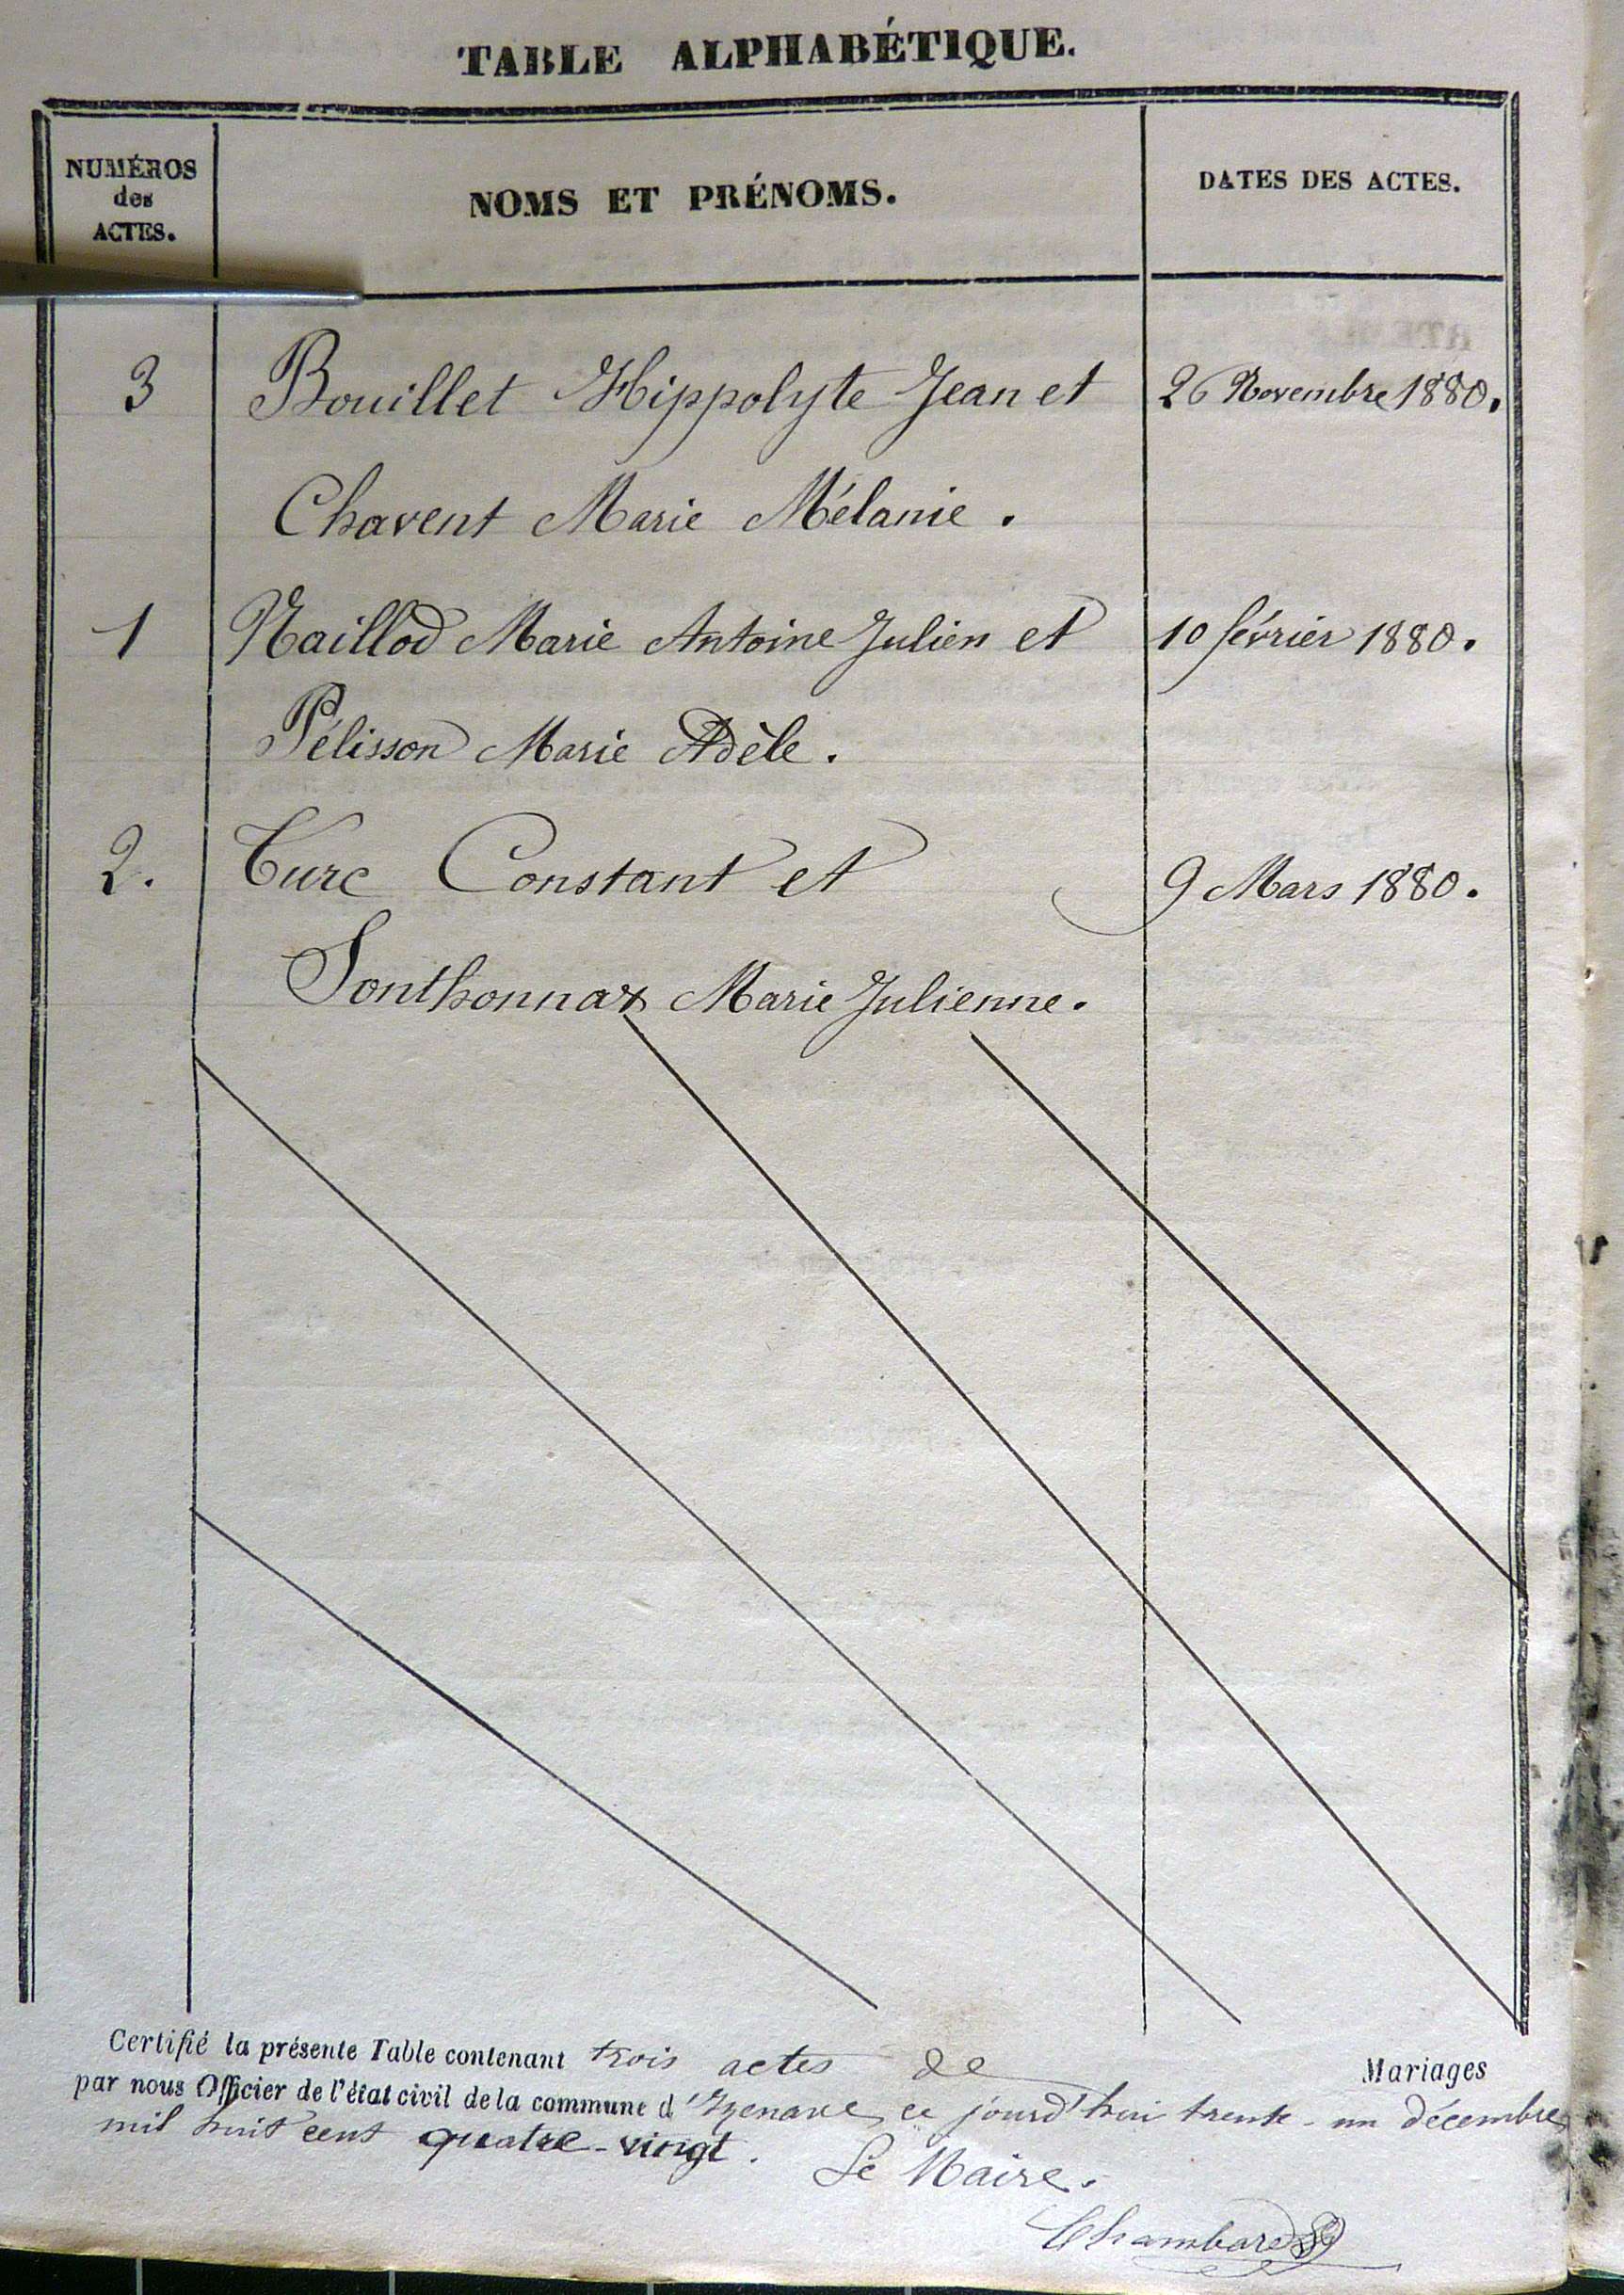 TABLE ALPHABÉTIQUE.
NUMÉROS
des
ACTES.
NOMS ET PRÉNOMS.
DATES DES ACTES.
3 Bouillet Hippolyte Jean et 26 Novembre 1880.
Chavent Marie Mélanie.
1 Maillod Marie Antoine Julien et 10 février 1880.
Pélisson Marie Adèle.
2. Turc Constant et 9 Mars 1880.
Sonthonnax Marie Julienne.
Certifié la présente Table contenant trois actes de Mariages
par nous Officier de l'état civil de la commune d'Izenave, ce jourd'hui trente-un décembre
mil huit cent quatre-vingt.
Le Maire.
Chambard